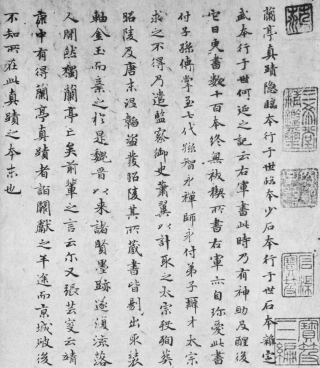 蘭亭真蹟隱臨本行于世臨本少石本行于世石本雜定
武本行于世何延之記云右軍書此時乃有神助及醒後
它日更書數十本終無祓禊所書右軍亦自珍愛此書
付子孫傳掌至七代孫智永禪師永付弟子辯才太宗
求之不得乃遣監察御史蕭翼以計取之太宗殂殉葬
昭陵及唐末溫韜盜發昭陵其所藏書皆剔出取裝
軸金玉而棄之於是魏晉以來諸賢墨跡遂復流落
人間然獨蘭亭亡矣前輩之言云尔又張芸叟云靖
康中有得蘭亭真蹟者詣闕獻之半途而京城破後
不知所在此真蹟之本末也